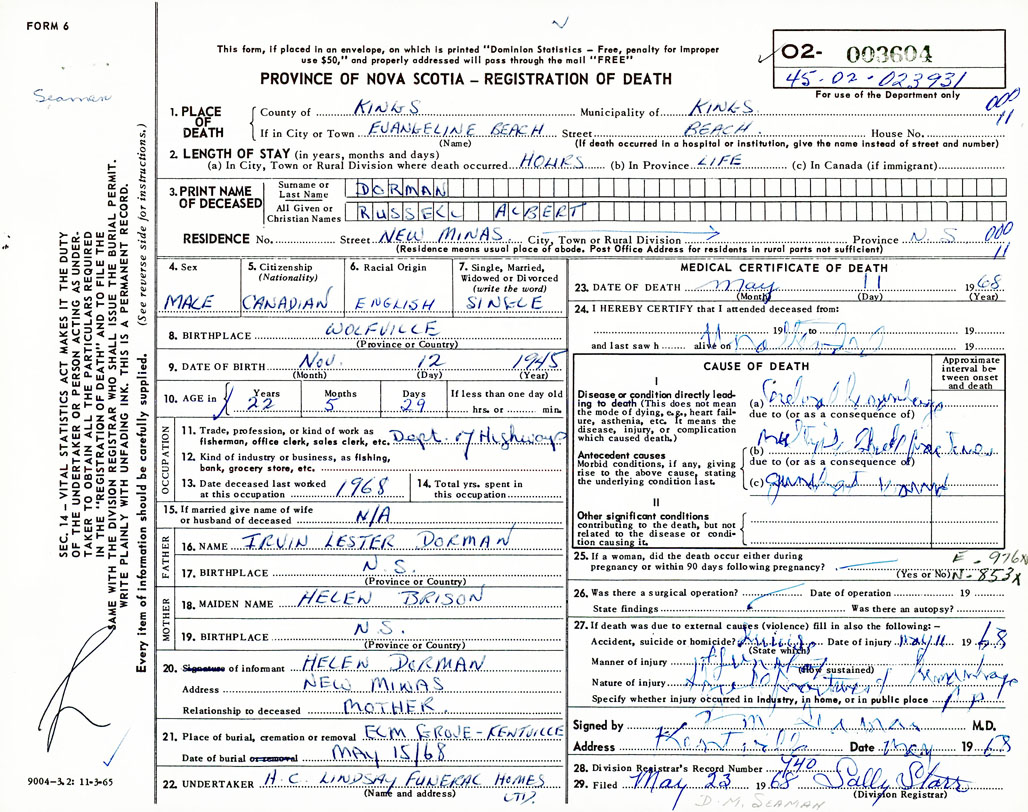 FORM 6
This form, if placed in an envelope, on which is printed "Dominion Statistics – Free, penalty for improper
use $50," and properly addressed will pass through the mail "FREE"
PROVINCE OF NOVA SCOTIA – REGISTRATION OF DEATH
02- 003604
45-02-023931
For use of the Department only
Seaman
SEC. 14 – VITAL STATISTICS ACT MAKES IT THE DUTY
OF THE UNDERTAKER OR PERSON ACTING AS UNDER-
TAKER TO OBTAIN ALL THE PARTICULARS REQUIRED
IN THE "REGISTRATION OF DEATH" AND TO FILE THE
SAME WITH THE DIVISION REGISTRAR WHO SHALL ISSUE THE BURIAL PERMIT.
WRITE PLAINLY WITH UNFADING INK. THIS IS A PERMANENT RECORD.
Every item of information should be carefully supplied. (See reverse side for instructions.)
1. PLACE OF DEATH
County of KINGS Municipality of KINGS 000 11
If in City or Town EVANGELINE BEACH Street BEACH House No.
(Name) (If death occurred in a hospital or institution, give the name instead of street and number)
2. LENGTH OF STAY (in years, months and days)
(a) In City, Town or Rural Division where death occurred HOURS (b) In Province LIFE (c) In Canada (if immigrant)
3. PRINT NAME OF DECEASED
Surname or Last Name DORMAN
All Given or Christian Names RUSSELL ALBERT
RESIDENCE No. Street NEW MINAS City, Town or Rural Division Province N.S 000 11
(Residence means usual place of abode. Post Office Address for residents in rural parts not sufficient)
4. Sex
MALE
5. Citizenship (Nationality)
CANADIAN
6. Racial Origin
ENGLISH
7. Single, Married, Widowed or Divorced (write the word)
SINGLE
8. BIRTHPLACE WOLFVILLE
(Province or Country)
9. DATE OF BIRTH Nov. 12 1945
(Month) (Day) (Year)
10. AGE in Years 22 Months 5 Days 29 If less than one day old hrs. or min.
OCCUPATION
11. Trade, profession, or kind of work as
fisherman, office clerk, sales clerk, etc. Dept. of Highways
12. Kind of industry or business, as fishing,
bank, grocery store, etc.
13. Date deceased last worked
at this occupation 1968
14. Total yrs. spent in
this occupation
15. If married give name of wife
or husband of deceased N/A
FATHER
16. NAME IRVIN LESTER DORMAN
17. BIRTHPLACE N.S.
(Province or Country)
MOTHER
18. MAIDEN NAME HELEN BRISON
19. BIRTHPLACE N.S.
(Province or Country)
20. Signature of informant HELEN DORMAN
Address NEW MINAS
Relationship to deceased MOTHER
21. Place of burial, cremation or removal ELM GROVE - KENTVILLE
Date of burial or removal MAY 15/68
22. UNDERTAKER H.C. LINDSAY FUNERAL HOMES LTD.
(Name and address)
MEDICAL CERTIFICATE OF DEATH
23. DATE OF DEATH May 11 1968
(Month) (Day) (Year)
24. I HEREBY CERTIFY that I attended deceased from:
19 to 19
and last saw h alive on 19
CAUSE OF DEATH
Approximate interval between onset and death
I
Disease or condition directly lead-
ing to death (This does not mean
the mode of dying, e.g., heart fail-
ure, asthenia, etc. It means the
disease, injury, or complication
which caused death.)
(a)
due to (or as a consequence of)
Antecedent causes
Morbid conditions, if any, giving
rise to the above cause, stating
the underlying condition last.
(b)
due to (or as a consequence of)
(c) gunshot wound
II
Other significant conditions
contributing to the death, but not
related to the disease or condi-
tion causing it.
25. If a woman, did the death occur either during
pregnancy or within 90 days following pregnancy?
(Yes or No)
E-976
N-853X
26. Was there a surgical operation? Date of operation 19
State findings Was there an autopsy?
27. If death was due to external causes (violence) fill in also the following:–
Accident, suicide or homicide? Date of injury May 11 1968
(State which)
Manner of injury
(How sustained)
Nature of injury hemorrhage
Specify whether injury occurred in industry, in home, or in public place
Signed by M.D.
Address Kentville Date May 1968
28. Division Registrar's Record Number 740
29. Filed May 23 1968 Sally Starr
(Division Registrar)
D.M. SEAMAN
9004-3.2: 11-3-65